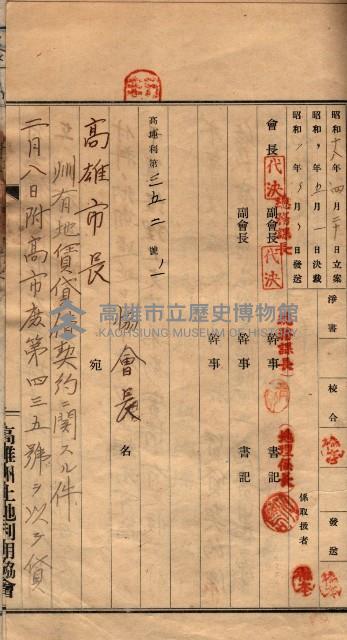 昭和十八年四月二十日立案
昭和〃年五月一日決裁
昭和〃年〃月〃日發送
淨書
校合
發送
係取扱者
會長
代決
副會長
副會長
代決
總務課長
幹事
幹事
書記
書記
地理係長
高地利第三五二號ノ1
協會長
名
高雄市長
宛
州有地賃貸借契約ニ関スル件
二月八日附高市庶第四三五號ヲ以テ賃
高雄州土地利用協會
高雄市立歷史博物館
KAOHSIUNG MUSEUM OF HISTORY